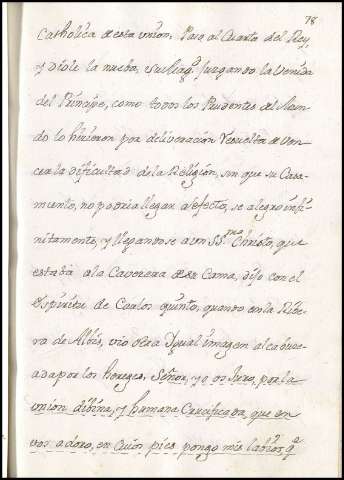 78
Catholica de esta union, Paso al Cuarto del Rey,
y diole la nueba, su Mag.d juzgando la Venida
del Principe, como todos los Prudentes del Mun-
do lo hicieron por deliveracion resuelta de ven-
cer la dificultad de la Religion, sin que su Casa-
miento, no podria llegar a efecto, se alegro infi-
nitamente, y llegandose a un SS.mo Christo, que
estaba a la Cavecera de su Cama, dijo con el
Espiritu de Carlos quinto, quando en la Ribe-
ra de Albis, vio otra Ygual imagen alcabuce-
ada por los hereges, Señor, yo os Juro, por la
union dibina, y humana Crucificada, que en
vos adoro, en Cuios pies pongo mis labios, q.e